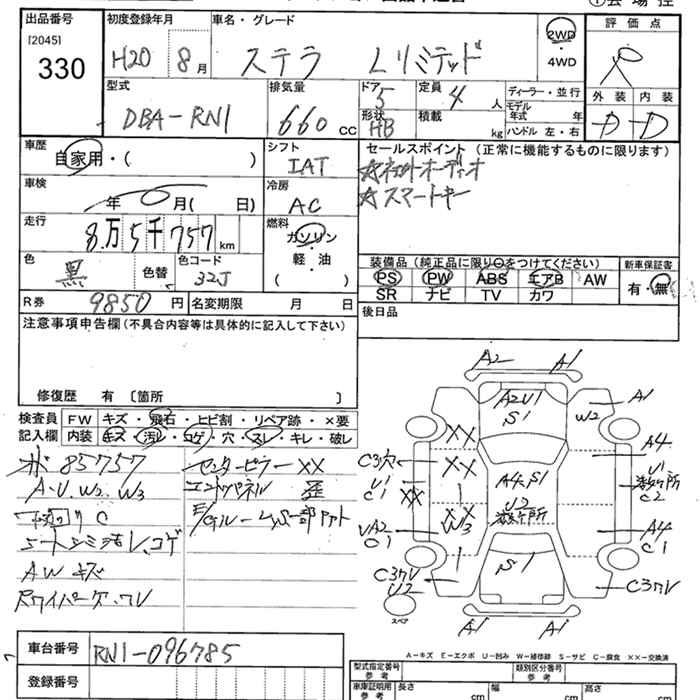 出品番号 初度登録年月 車名・グレード 評価点
[2045]
330
H20 8月 ステラ Lリミテッド 2WD・4WD
型式 排気量 ドア 定員 ディーラー・並行 外装 内装
DBA-RN1 660CC 5 4人 モデル年式 年 D D
形状 積載 HB kg ハンドル 左・右
車歴 シフト セールスポイント (正常に機能するものに限ります)
自家用・( ) IAT
☆スマートキー
車検 冷房
年 0月( 日) AC
走行 燃料
8万5千757km ガソリン・軽・油( )
色 色替 色コード 装備品(純正品に限り○をつけてください) 新車保証書
黒 32J PS PW ABS エアB AW 有・無
SR ナビ TV カワ
R券 9850円 名変期限 月 日
後日品
注意事項申告欄(不具合内容等は具体的に記入して下さい)
修復歴 有 〔箇所 〕
検査員記入欄 FW キズ・飛石・ヒビ割・リペア跡・×要
内装 キズ・汚レ・コゲ・穴・スレ・キレ・破レ
85757 センターピラーXX
A・U、W2、W3 エンドパネル 歪
AW キズ
A2 A1
A2U1 S1 A1 W2
XX XX XX
A4 U1 C2
C3穴 U1 C1
A4.S1 U2
W3
UA2 C1 A4 C1
S1
C3 U2 C3
A1 A1
スペア
A-キズ E-エクボ U-凹み W-補修跡 S-サビ C-腐食 ××-交換済
車台番号 RN1-096785
登録番号
型式指定番号 参考 類別区分番号 参考
車庫証明用 参考 長さ cm 幅 cm 高さ cm